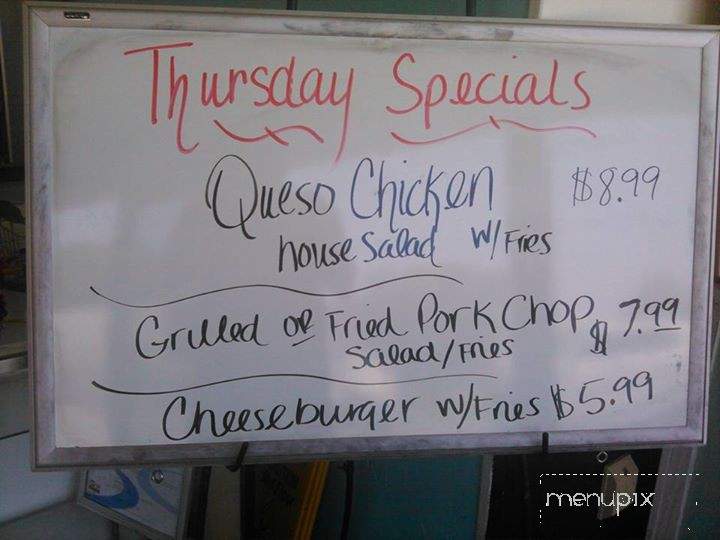 Thursday Specials
Queso Chicken $8.99
House Salad w/Fries
Grilled or Fried Pork Chop $7.99
Salad/Fries
Cheeseburger w/Fries $5.99
menupix